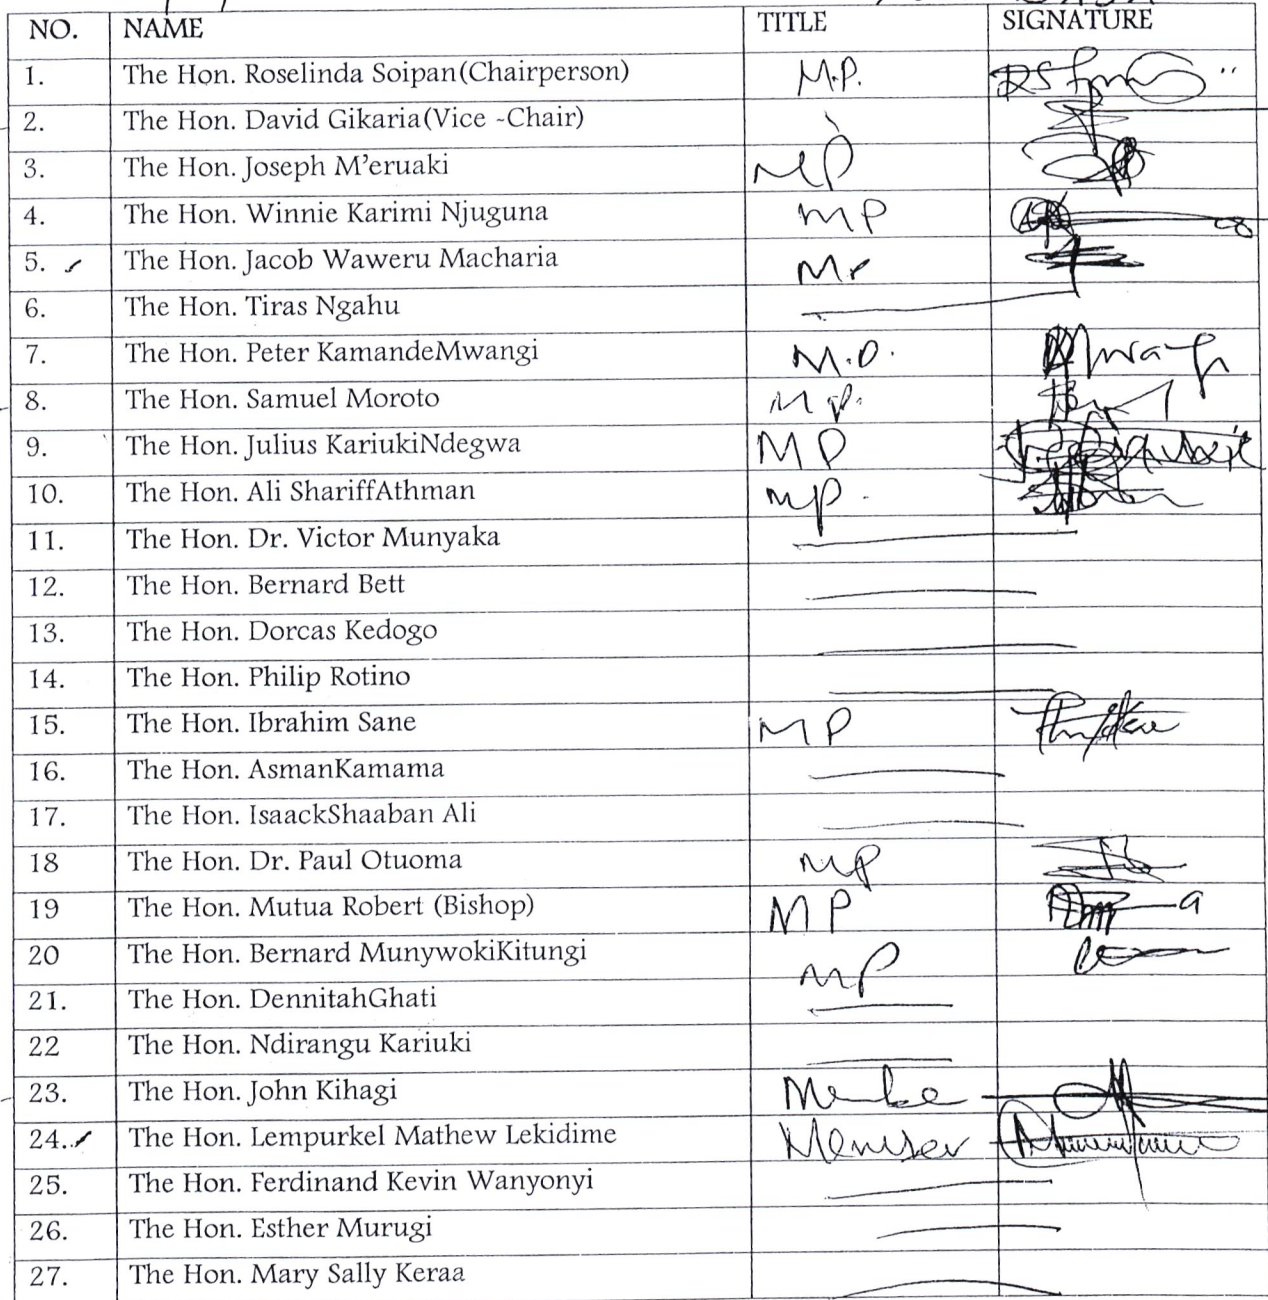 NO. NAME TITLE SIGNATURE
1. The Hon. Roselinda Soipan(Chairperson) M.P.
2. The Hon. David Gikaria(Vice -Chair)
3. The Hon. Joseph M'eruaki MP
4. The Hon. Winnie Karimi Njuguna MP
5. The Hon. Jacob Waweru Macharia
6. The Hon. Tiras Ngahu
7. The Hon. Peter KamandeMwangi Mwangi
8. The Hon. Samuel Moroto MP.
9. The Hon. Julius KariukiNdegwa MP
10. The Hon. Ali ShariffAthman MP.
11. The Hon. Dr. Victor Munyaka
12. The Hon. Bernard Bett
13. The Hon. Dorcas Kedogo
14. The Hon. Philip Rotino
15. The Hon. Ibrahim Sane MP
16. The Hon. AsmanKamama
17. The Hon. IsaackShaaban Ali
18 The Hon. Dr. Paul Otuoma MP
19 The Hon. Mutua Robert (Bishop) MP
20 The Hon. Bernard MunywokiKitungi MP
21. The Hon. DennitahGhati
22 The Hon. Ndirangu Kariuki
23. The Hon. John Kihagi
24. The Hon. Lempurkel Mathew Lekidime Member
25. The Hon. Ferdinand Kevin Wanyonyi
26. The Hon. Esther Murugi
27. The Hon. Mary Sally Keraa